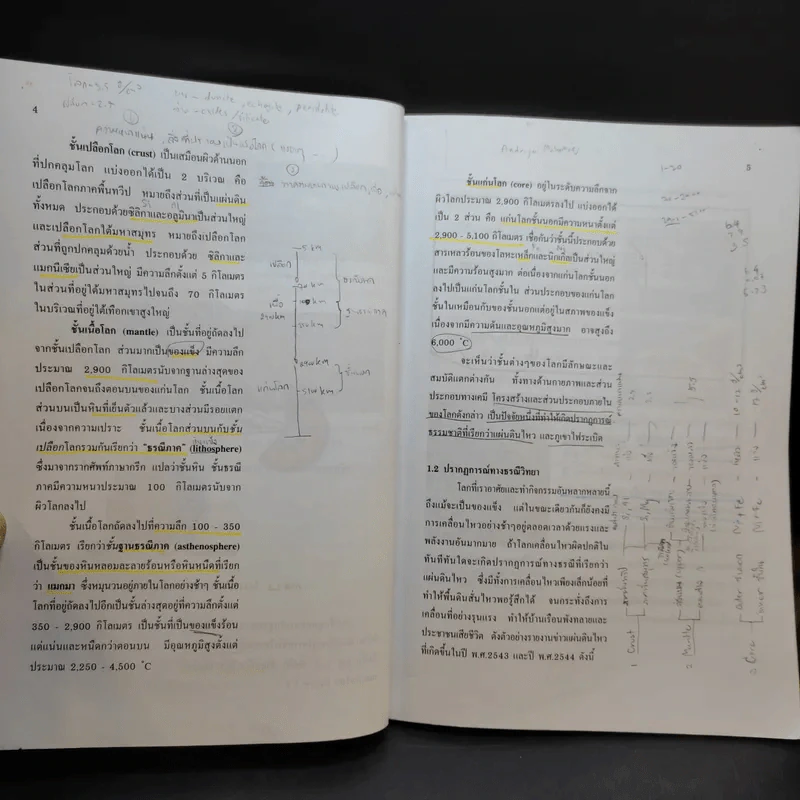 4
ชั้นเปลือกโลก (crust) เป็นเสมือนผิวด้านนอก
ที่ปกคลุมโลก แบ่งออกได้เป็น 2 บริเวณ คือ
เปลือกโลกภาคพื้นทวีป หมายถึงส่วนที่เป็นแผ่นดิน
ทั้งหมด ประกอบด้วยซิลิกาและอลูมินาเป็นส่วนใหญ่
และเปลือกโลกใต้มหาสมุทร หมายถึงเปลือกโลก
ส่วนที่ถูกปกคลุมด้วยน้ำ ประกอบด้วย ซิลิกาและ
แมกนีเซียเป็นส่วนใหญ่ มีความลึกตั้งแต่ 5 กิโลเมตร
ในส่วนที่อยู่ใต้มหาสมุทรไปจนถึง 70 กิโลเมตร
ในบริเวณที่อยู่ใต้เทือกเขาสูงใหญ่
ชั้นเนื้อโลก (mantle) เป็นชั้นที่อยู่ถัดลงไป
จากชั้นเปลือกโลก ส่วนมากเป็นของแข็ง มีความลึก
ประมาณ 2,900 กิโลเมตรนับจากฐานล่างสุดของ
เปลือกโลกจนถึงตอนบนของแก่นโลก ชั้นเนื้อโลก
ส่วนบนเป็นหินที่เย็นตัวแล้วและบางส่วนมีรอยแตก
เนื่องจากความเปราะ ชั้นเนื้อโลกส่วนบนกับชั้น
เปลือกโลกรวมกันเรียกว่า "ธรณีภาค" (lithosphere)
ซึ่งมาจากรากศัพท์ภาษากรีก แปลว่าชั้นหิน ชั้นธรณี
ภาคมีความหนาประมาณ 100 กิโลเมตรนับจาก
ผิวโลกลงไป
ชั้นเนื้อโลกถัดลงไปที่ความลึก 100 - 350
กิโลเมตร เรียกว่าชั้นฐานธรณีภาค (asthenosphere)
เป็นชั้นของหินหลอมละลายร้อนหรือหินหนืดที่เรียก
ว่า แมกมา ซึ่งหมุนวนอยู่ภายในโลกอย่างช้าๆ ชั้นเนื้อ
โลกที่อยู่ถัดลงไปอีกเป็นชั้นล่างสุดอยู่ที่ความลึกตั้งแต่
350 - 2,900 กิโลเมตร เป็นชั้นที่เป็นของแข็งร้อน
แต่แน่นและหนืดกว่าตอนบน มีอุณหภูมิสูงตั้งแต่
ประมาณ 2,250 - 4,500 °C
5
ชั้นแก่นโลก (core) อยู่ในระดับความลึกจาก
ผิวโลกประมาณ 2,900 กิโลเมตรลงไป แบ่งออกได้
เป็น 2 ส่วน คือ แก่นโลกชั้นนอกมีความหนาตั้งแต่
2,900 - 5,100 กิโลเมตร เชื่อกันว่าชั้นนี้ประกอบด้วย
สารเหลวร้อนของโลหะเหล็กและนิกเกิลเป็นส่วนใหญ่
และมีความร้อนสูงมาก ต่อเนื่องจากแก่นโลกชั้นนอก
ลงไปเป็นแก่นโลกชั้นใน ส่วนประกอบของแก่นโลก
ชั้นในเหมือนกับของชั้นนอกแต่อยู่ในสภาพของแข็ง
เนื่องจากมีความดันและอุณหภูมิสูงมาก อาจสูงถึง
6,000 °C
จะเห็นว่าชั้นต่างๆของโลกมีลักษณะและ
สมบัติแตกต่างกัน ทั้งทางด้านกายภาพและส่วน
ประกอบทางเคมี โครงสร้างและส่วนประกอบภายใน
ของโลกดังกล่าว เป็นปัจจัยหนึ่งที่ทำให้เกิดปรากฏการณ์
ธรรมชาติที่เรียกว่าแผ่นดินไหว และภูเขาไฟระเบิด
1.2 ปรากฏการณ์ทางธรณีวิทยา
โลกที่เราอาศัยและทำกิจกรรมอันหลากหลายนี้
ถึงแม้จะเป็นของแข็ง แต่ในขณะเดียวกันก็ยังคงมี
การเคลื่อนไหวอย่างช้าๆอยู่ตลอดเวลาด้วยแรงและ
พลังงานอันมากมาย ถ้าโลกเคลื่อนไหวผิดปกติใน
ทันทีทันใดจะเกิดปรากฏการณ์ทางธรณีที่เรียกว่า
แผ่นดินไหว ซึ่งมีทั้งการเคลื่อนไหวเพียงเล็กน้อยที่
ทำให้พื้นดินสั่นไหวพอรู้สึกได้ จนกระทั่งถึงการ
เคลื่อนที่อย่างรุนแรง ทำให้บ้านเรือนพังทลายและ
ประชาชนเสียชีวิต ดังตัวอย่างรายงานข่าวแผ่นดินไหว
ที่เกิดขึ้นในปี พ.ศ.2543 และปี พ.ศ.2544 ดังนี้